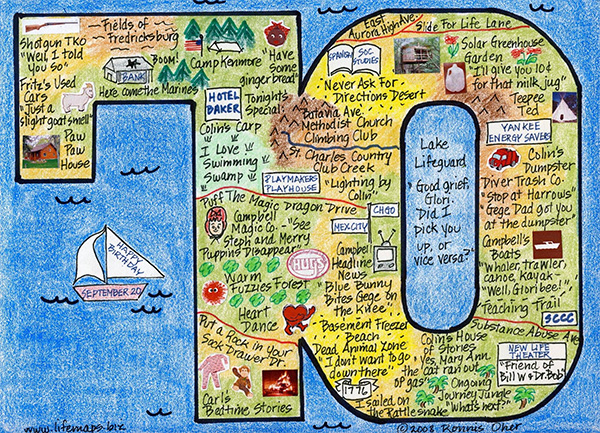 Shotgun TKO
"Well, I told
You so"
Fields of
Fredricksburg
BOOM!
BANK
Here come the Marines
Camp Kenmore
"Have
Some
gingerbread"
Fritz's Used
Cars
"Just a
slight goat smell"
Paw
Paw
House
HOTEL
BAKER
Tonight's
Special:
Colin's Carp
I Love
Swimming
Swamp
Batavia Ave
Methodist Church
Climbing Club
St. Charles Country
Club Creek
"Lighting by
Colin"
PLAYMAKERS
PLAYHOUSE
East
Aurora High Ave.
Slide For Life Lane
SPANISH
SOC
STUDIES
Never Ask For
Directions Desert
Solar Greenhouse
Garden
"I'll give you 10¢
for that milk jug"
Teepee
Ted
YANKEE
ENERGY SAVERS
Colin's
Dumpster
Diver Trash Co.
"Stop at Harrows"
"Gege Dad got you
at the dumpster"
Campbell's
Boats
"Whaler, trawler,
canoe, Kayak-
"Well, Glori bee!",
Teaching Trail
SCCC
Substance Abuse Ave
NEW LIFE
THEATER
"Friend of
Bill W & Dr. Bob"
Lake
Lifeguard
"Good grief,
Glori.
Did I
pick you
up, or
vice versa?"
Puff The Magic Dragon Drive
Campbell
Magic Co. - "See
Steph and Merry
Puppins Disappear"
CHGO
MEX CITY
HUGS
Campbel
Headline
News
"Blue Bunny
Bites Gege on
the Knee"
Warm
Fuzzies Forest
Heart
Dance
Put a Rock in your
Sock Drawer Dr.
Carl's
Bedtime Stories
Basement Freezer
Beach
Dead Animal Zone
"I don't want to go
down there"
1776
I sailed on
the Rattlesnake
Colin's House
of Stories
"Yes, Mary Ann
the cat ran out
of gas"
Ongoing
Journey Jungle
"What's next?"
HAPPY
BIRTHDAY
SEPTEMBER 20
www.lifemaps.biz
©2008 Ronnis Oher